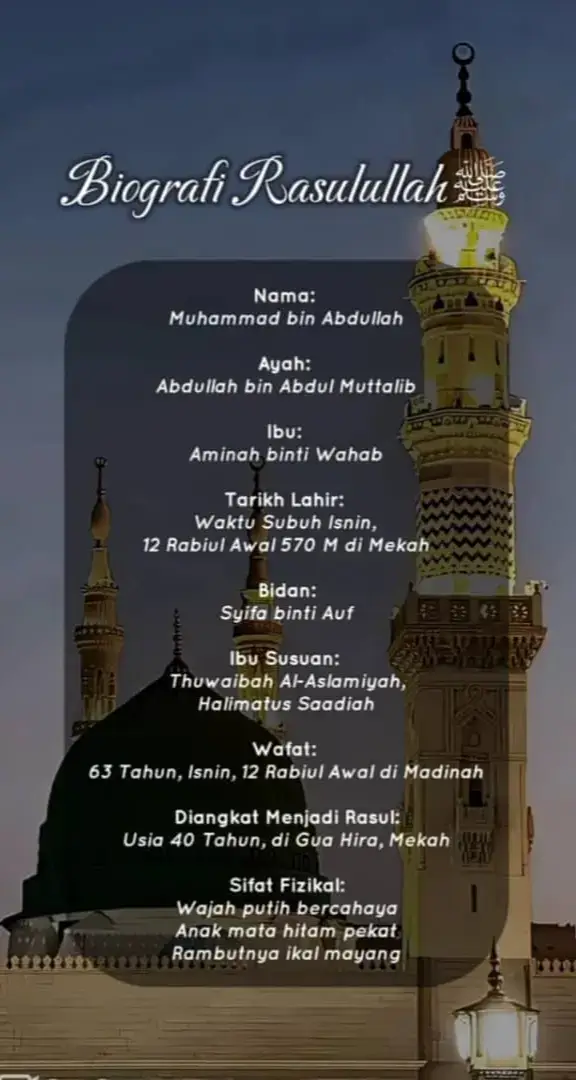 Biografi Rasulullah ﷺ
Nama:
Muhammad bin Abdullah
Ayah:
Abdullah bin Abdul Muttalib
Ibu:
Aminah binti Wahab
Tarikh Lahir:
Waktu Subuh Isnin,
12 Rabiul Awal 570 M di Mekah
Bidan:
Syifa binti Auf
Ibu Susuan:
Thuwaibah Al-Aslamiyah,
Halimatus Saadiah
Wafat:
63 Tahun, Isnin, 12 Rabiul Awal di Madinah
Diangkat Menjadi Rasul:
Usia 40 Tahun, di Gua Hira, Mekah
Sifat Fizikal:
Wajah putih bercahaya
Anak mata hitam pekat
Rambutnya ikal mayang